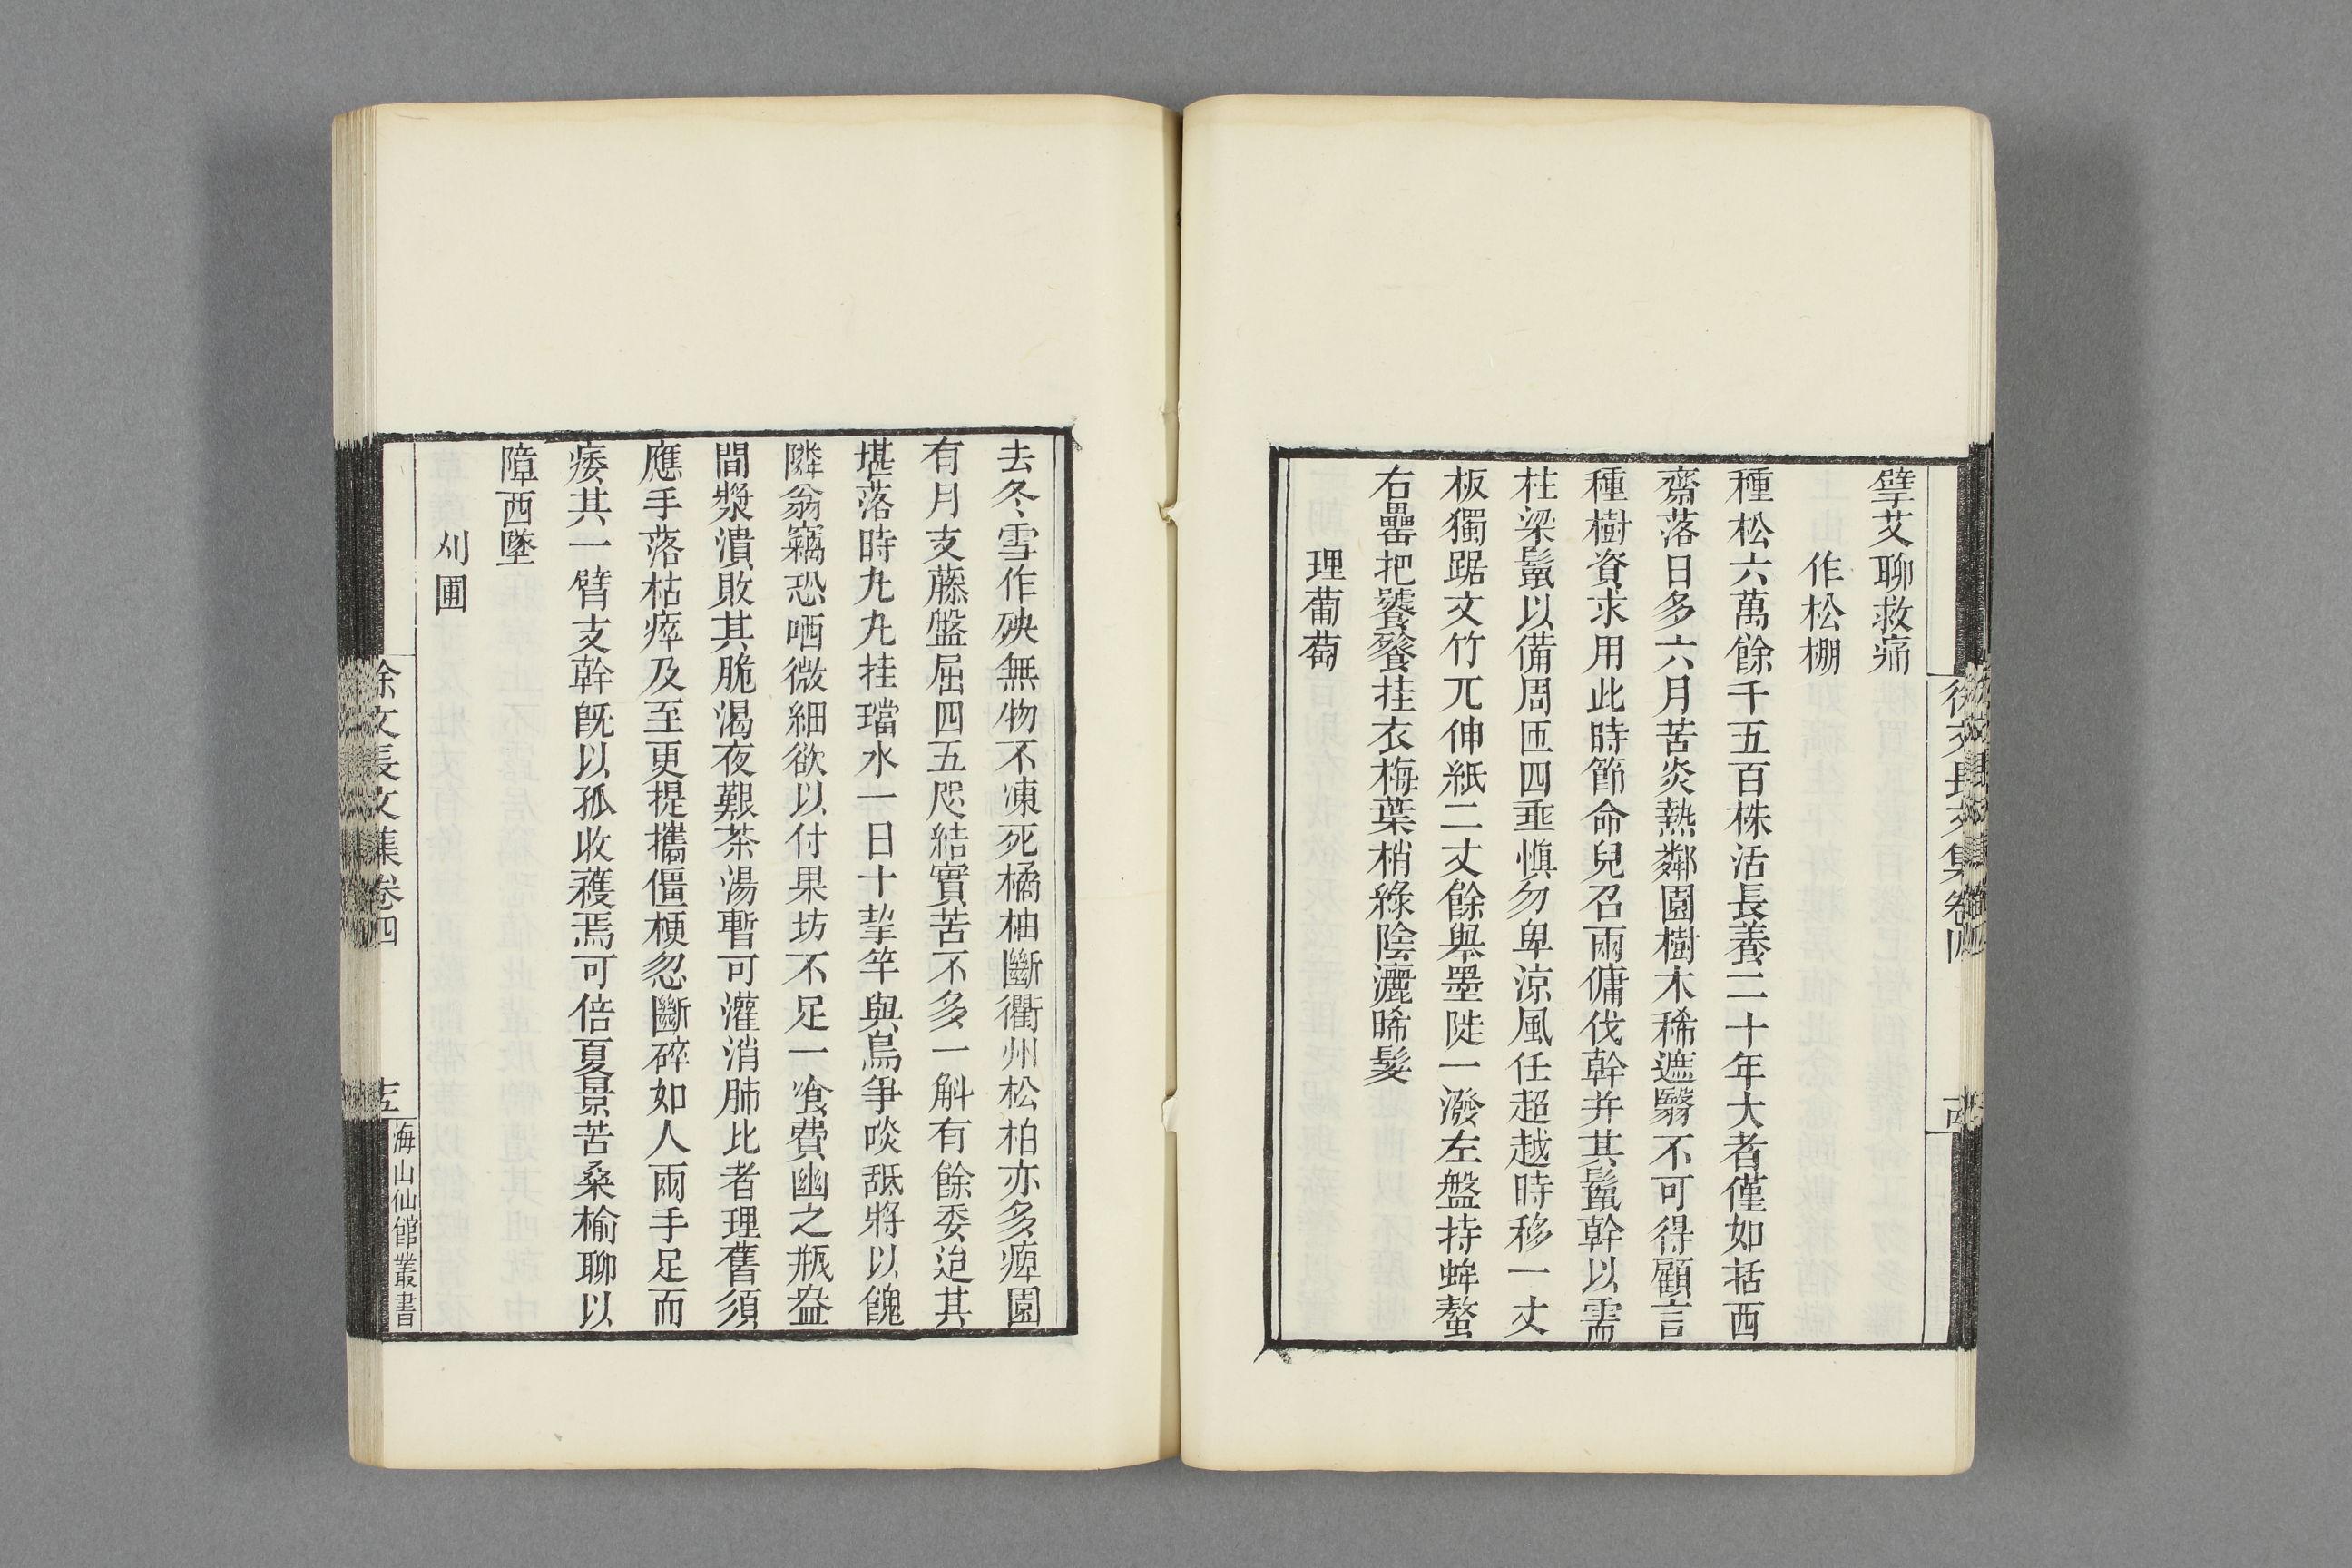 徐文長文集卷四
擘艾聊救痛
作松棚
種松六萬餘千五百株活長養二十年大者僅如括西
齋落日多六月苦炎熱鄰園樹木稀遮翳不可得顧言
種樹資求用此時節命兒召兩傭伐幹并其鬣幹以需
柱梁鬣以備周匝四垂愼勿卑涼風任超越時移一丈
板獨踞文竹兀伸紙二丈餘舉墨陡一潑左盤持蟀螯
右罍把饕餮挂衣梅葉梢綠陰灑晞髮
理葡萄
去冬雪作殃無物不凍死橘柚斷衢州松柏亦多瘁園
有月支藤盤屈四五咫結實苦不多一斛有餘委迨其
堪落時九九挂璫水一日十挈竿與鳥爭啖舐將以餽
隣翁竊恐哂微細欲以付果坊不足一飡費幽之瓶盎
間漿潰敗其脆渴夜艱茶湯暫可灌消肺比者理舊須
應手落枯瘁及至更提攜僵梗忽斷碎如人兩手足而
痿其一臂支幹旣以孤收穫焉可倍夏景苦桑榆聊以
障西墜
刈圃
徐文長文集卷四
海山仙館叢書